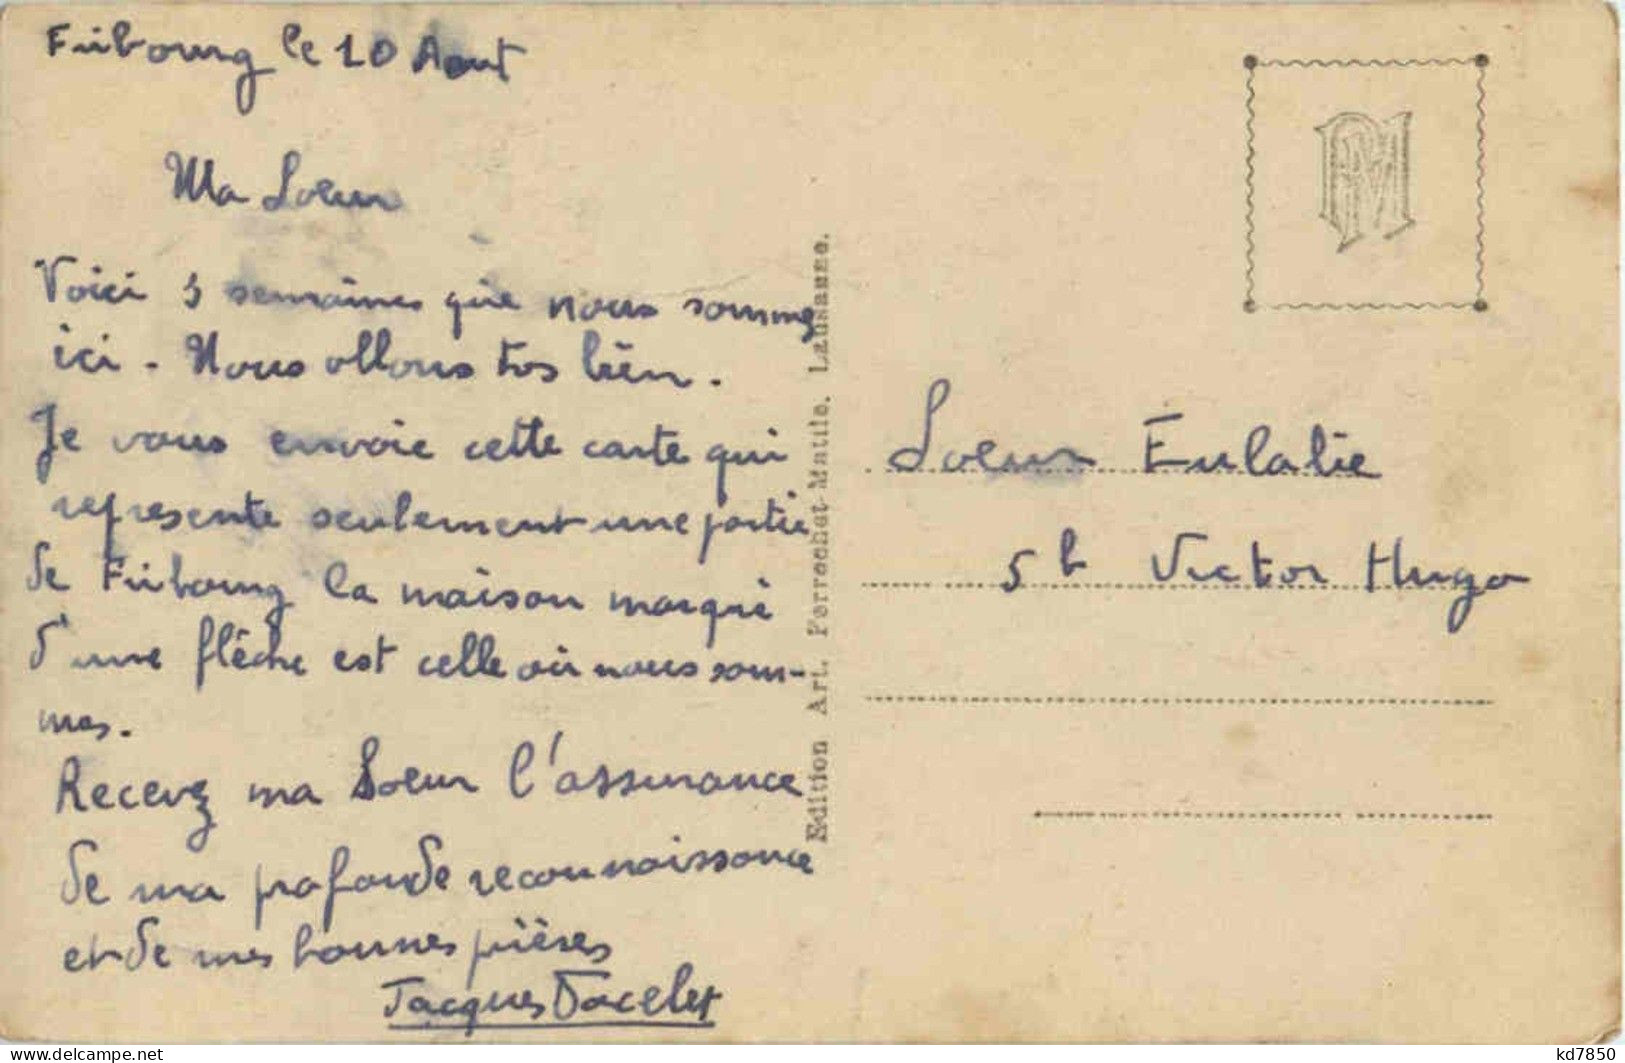 Fribourg le 10 Aout
Ma Soeur
Voici 3 semaines que nous sommes
ici - Nous allons tos bien.
Je vous envoie cette carte qui
represente seulement une partie
de Fribourg la maison marqué
d'une flèche est celle où nous som-
mes.
Recevez ma Soeur l'assurance
de ma profonde reconnaissance
et de mes bonnes prières
Jacques
Edition Art. Perrochet-Matile. Lausanne.
PM
Soeur Eulalie
5 b Victor Hugo
kd7850